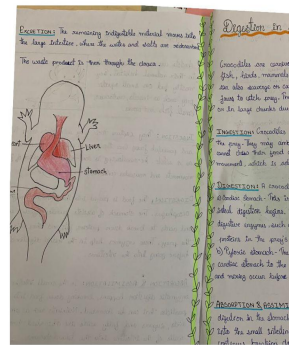 EXCRETION: The remaining indigestible material moves into
the large intestine, where the water and salts are reabsorbed
The waste product is then through the cloaca.
Liver
Stomach
Digestion in
Crocodiles are
fish, birds, mammals
are also scavenge on
jaws to catch prey.
or in large chunks
INGESTION: Crocodiles
the prey. they may
down their food
movement, which is
DIGESTION: A
a) Cardiac stomach - This is
initial digestion begins.
digestive enzymes such
proteins in the prey's
b) Pyloric stomach - The
cardiac stomach to the
and mixing occurs before
ABSORPTION & ASSIMI
digestion in the stomach
into the small intestine